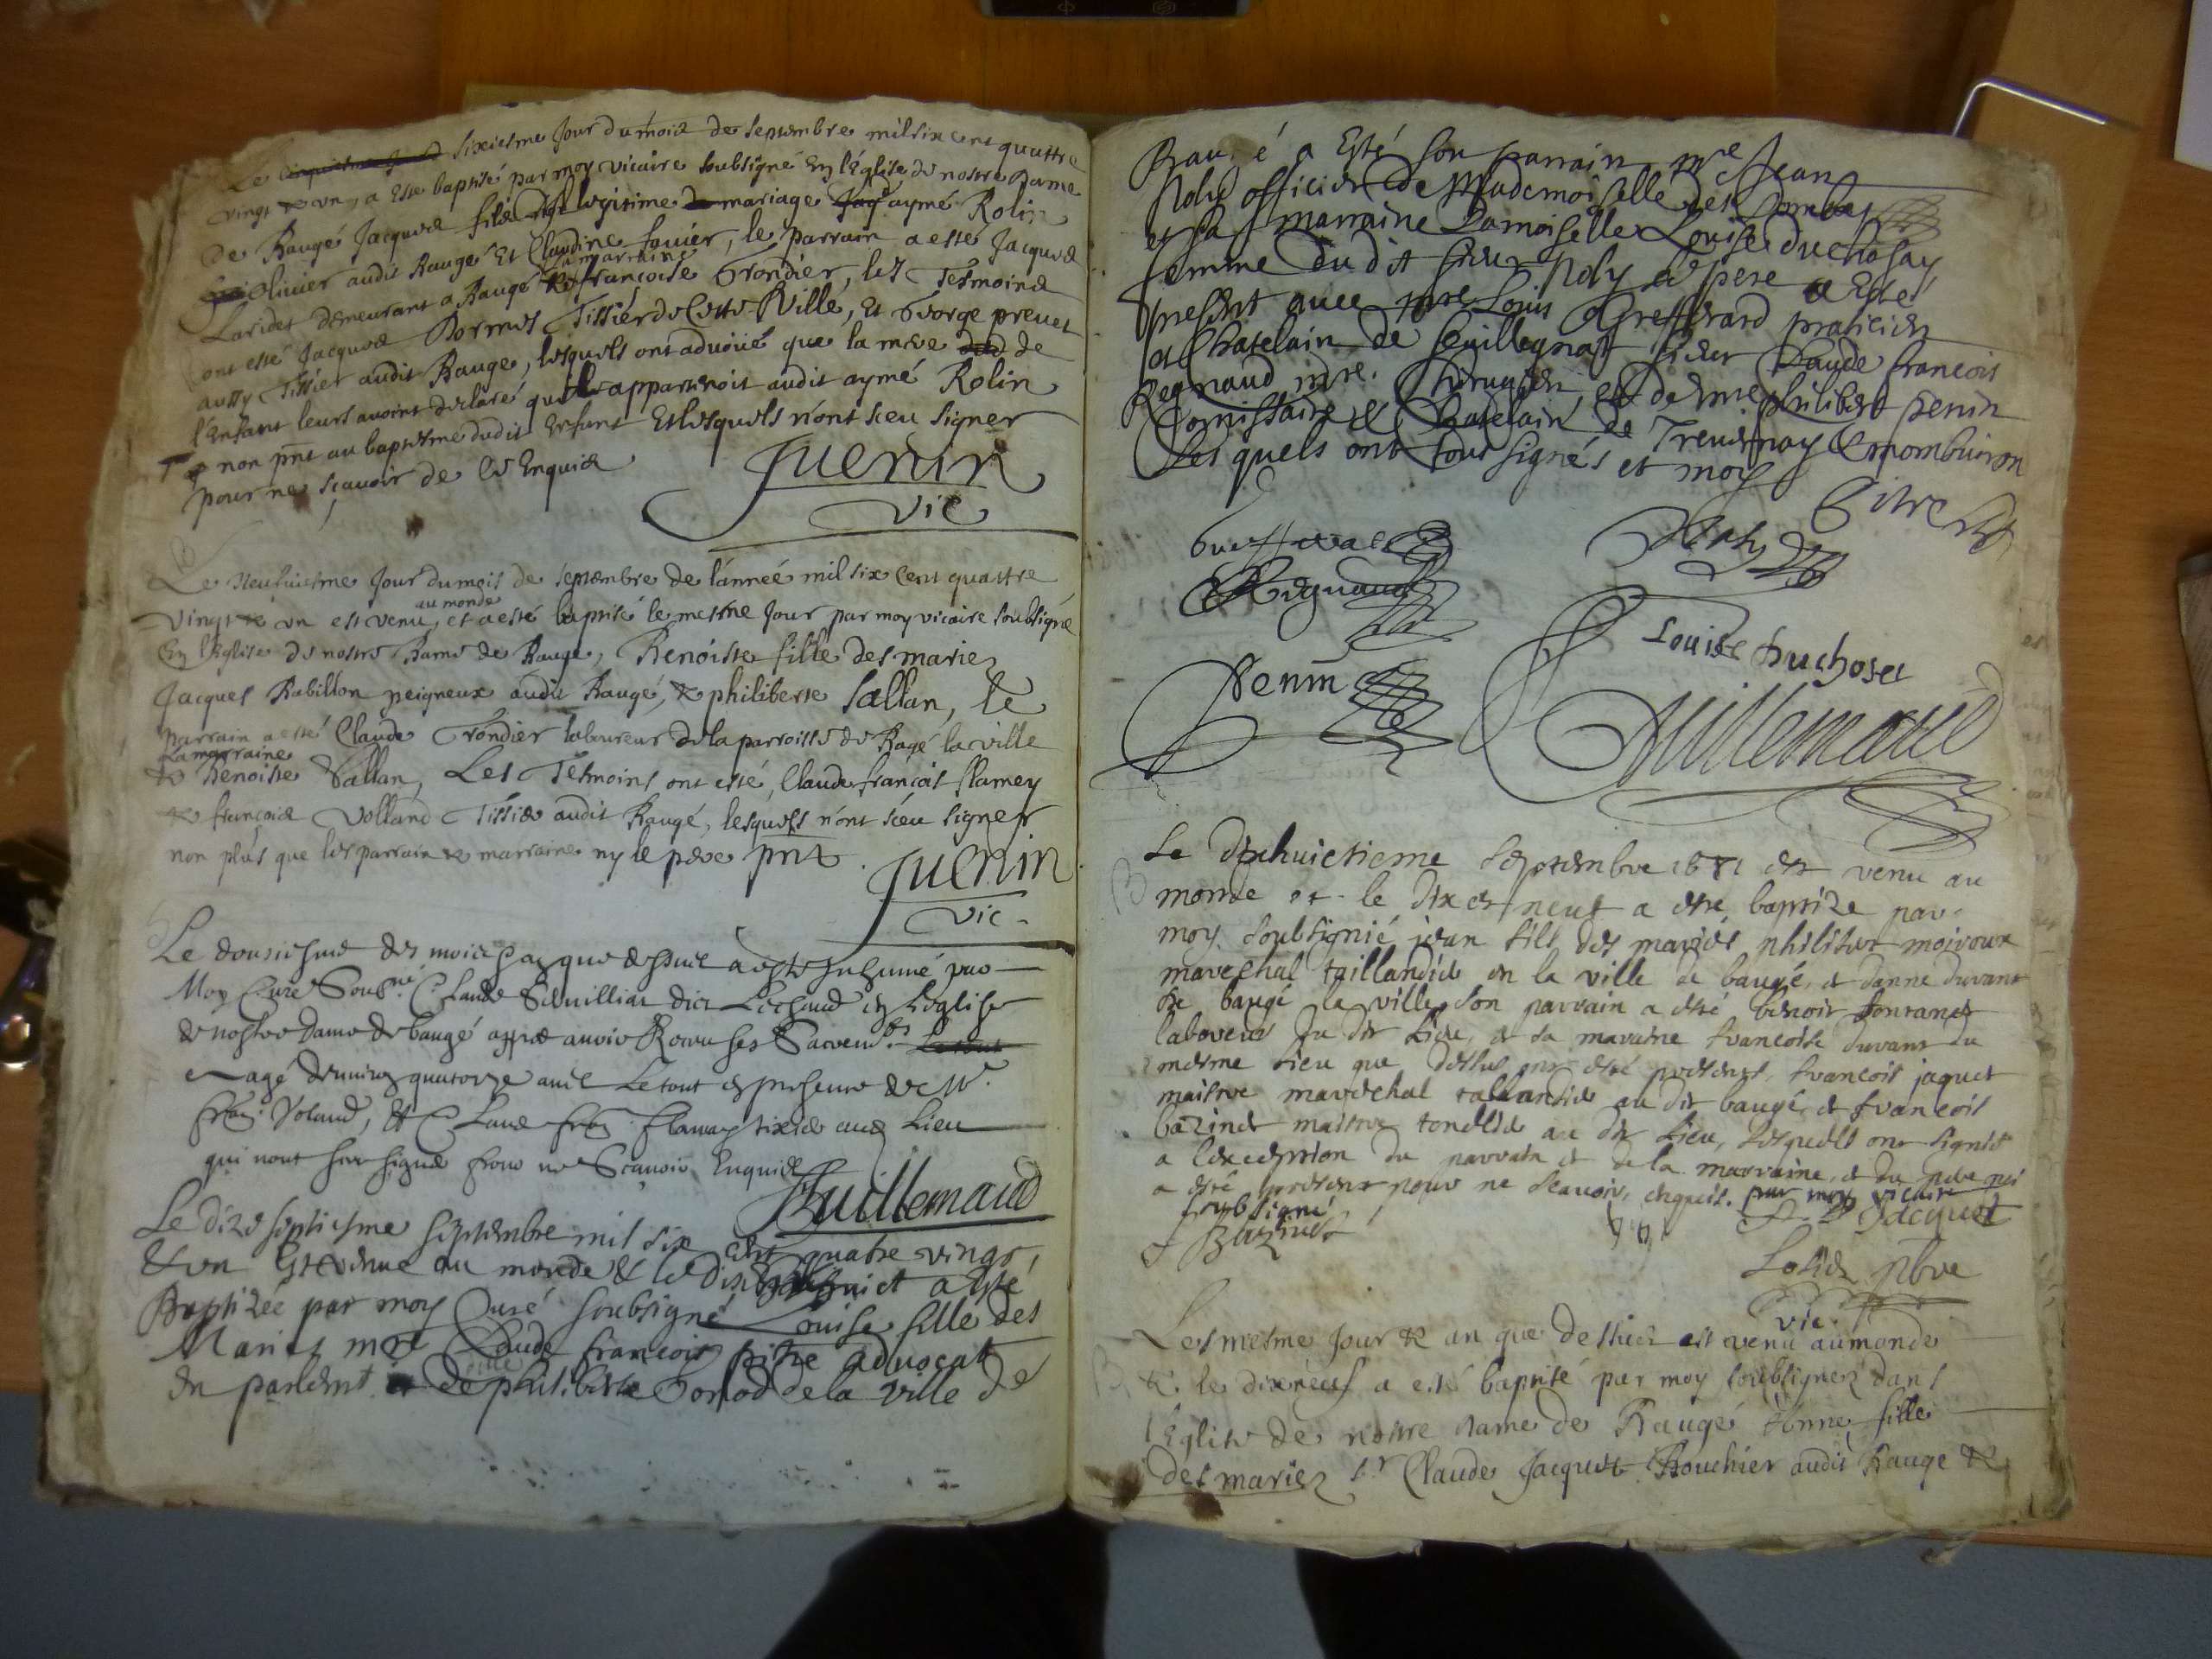 Le sixiesme Jour du mois de septembre mil six cent quattre
vingt & un, a Esté baptisé par moy vicaire soubsigné En l'Eglise de nostre Dame
De Baugé Jacques fils legitime mariage aymé Rolin
olinier audit Baugé Et Claudine favier, le parrain a esté Jacques
Laridet demeurant a Baugé & la marraine françoise Trondier, les Tesmoins
ont esté Jacques Bormes Tissier de Cette Ville, Et George prevet
aussy Tissier audit Bauge, lesquels ont advoüé que la mere de
l'Enfant leurs avoint declaré quil appartenoit audit aymé Rolin
non pnt au baptesme dudit Enfant Et lesquels n'ont sceu signer
pour ne sçavoir de ce Enquis
Juenin
vic
Le Neufuiesme Jour du mois de septembre de l'année mil six cent quattre
vingt & un est venu au monde, et a esté baptisé le mesme Jour par moy vicaire soubsigné
En l'Eglise de nostre Dame de Bauge, Benoiste fille des mariez
Jacques Rabillon peigneux audit Baugé, & philiberte Sallan, le
parrain a esté Claude Trondier laboureur de la parroisse de Bagé la ville
& la marraine Benoiste Sallan, Les Tesmoins ont esté, Claude françois flamey
& françois Volland Tissie audit Baugé, lesquels n'ont sceu signer
non plus que les parrain & marraine ny le pere pnt.
Juenin
vic.
Le dousiesme des mois que dessus a esté Inhumé par
Moy Curé Sousné. Claude dict en L'eglise
de nostre dame de baugé appres avoir Receu ses Sacrem.ts
agé denviron quatorze ans Le tout en presence de M.
fran. Voland, Et Claude fran flamay tixie aud Lieu
qui nont sceu signer pour ne Scavoir Enquis
Guillemaud
Le dize septiesme septembre mil six cent quatre vingt
& un Est venue au monde & le dix huict a Esté
Baptizée par moy Curé soubsigné Louise fille des
Mariés mre Claude francois pitre advocat
en parlemt et de philiberte Gorjod de la ville de
Baugé a Esté son parrain mre Jean
Noly officier de Mademoiselle des Dombes
et sa marraine Damoiselle Louise duchosay
femme du dit sieur Noly Le pere a Esté
present avec mre Louis Greffward praticien
et Chatelain de sieur Claude francois
Regnaud mre. Chirurgien et de mre philibert penin
Comissaire & Chatelain de Treuernay & mombuiron
Les quels ont tous signés et moy
Pitre
Noly
Regnaud
Louise Duchoset
Penin
Guillemaud
Le dixhuictieme septembre 1681 est venu au
monde et le dix et neuf a esté baptize par
moy soubsignié jean fils des mariés philibert moiroux
mareschal taillandié en la ville de baugé, et danne durant
de baugé la ville son parrain a esté benoit fontanet
laboreur du dit lieu, et sa maraine francoise durant du
mesme lieu que dessus ont esté presens, francois jaquet
maistre mareschal tallandié au dit baugé, et francois
bazinet maistre tondeur au dit lieu, lesquels ont signés
a lexception du parrain et de la marraine, et du pere qui
a esté present pour ne scavoir, enquis. par moy vicaire
soubsigné
f Bazinet
Jacquet
pbre
vic.
Les mesme Jour & an que dessus est venu au monde
& le dixneuf a esté baptisé par moy soubsignez dans
l'Eglise de nostre Dame de Baugé Anne fille
des mariez sr Claude Jacquet Bouchier audit Bauge &